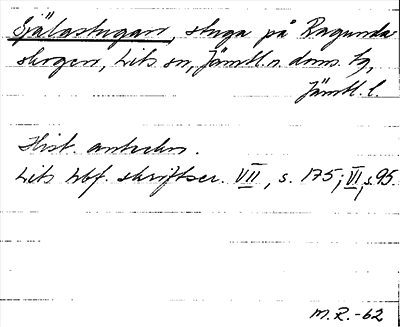 Själastugan, stuga på Ragunda
skogen, Lits sn, Jämtl. n. doms. tg,
Jämtl. l.
Hist. anteckn.
Lits hbf. skriftser. VII, s. 175; VI, s. 95.
M. R. -62